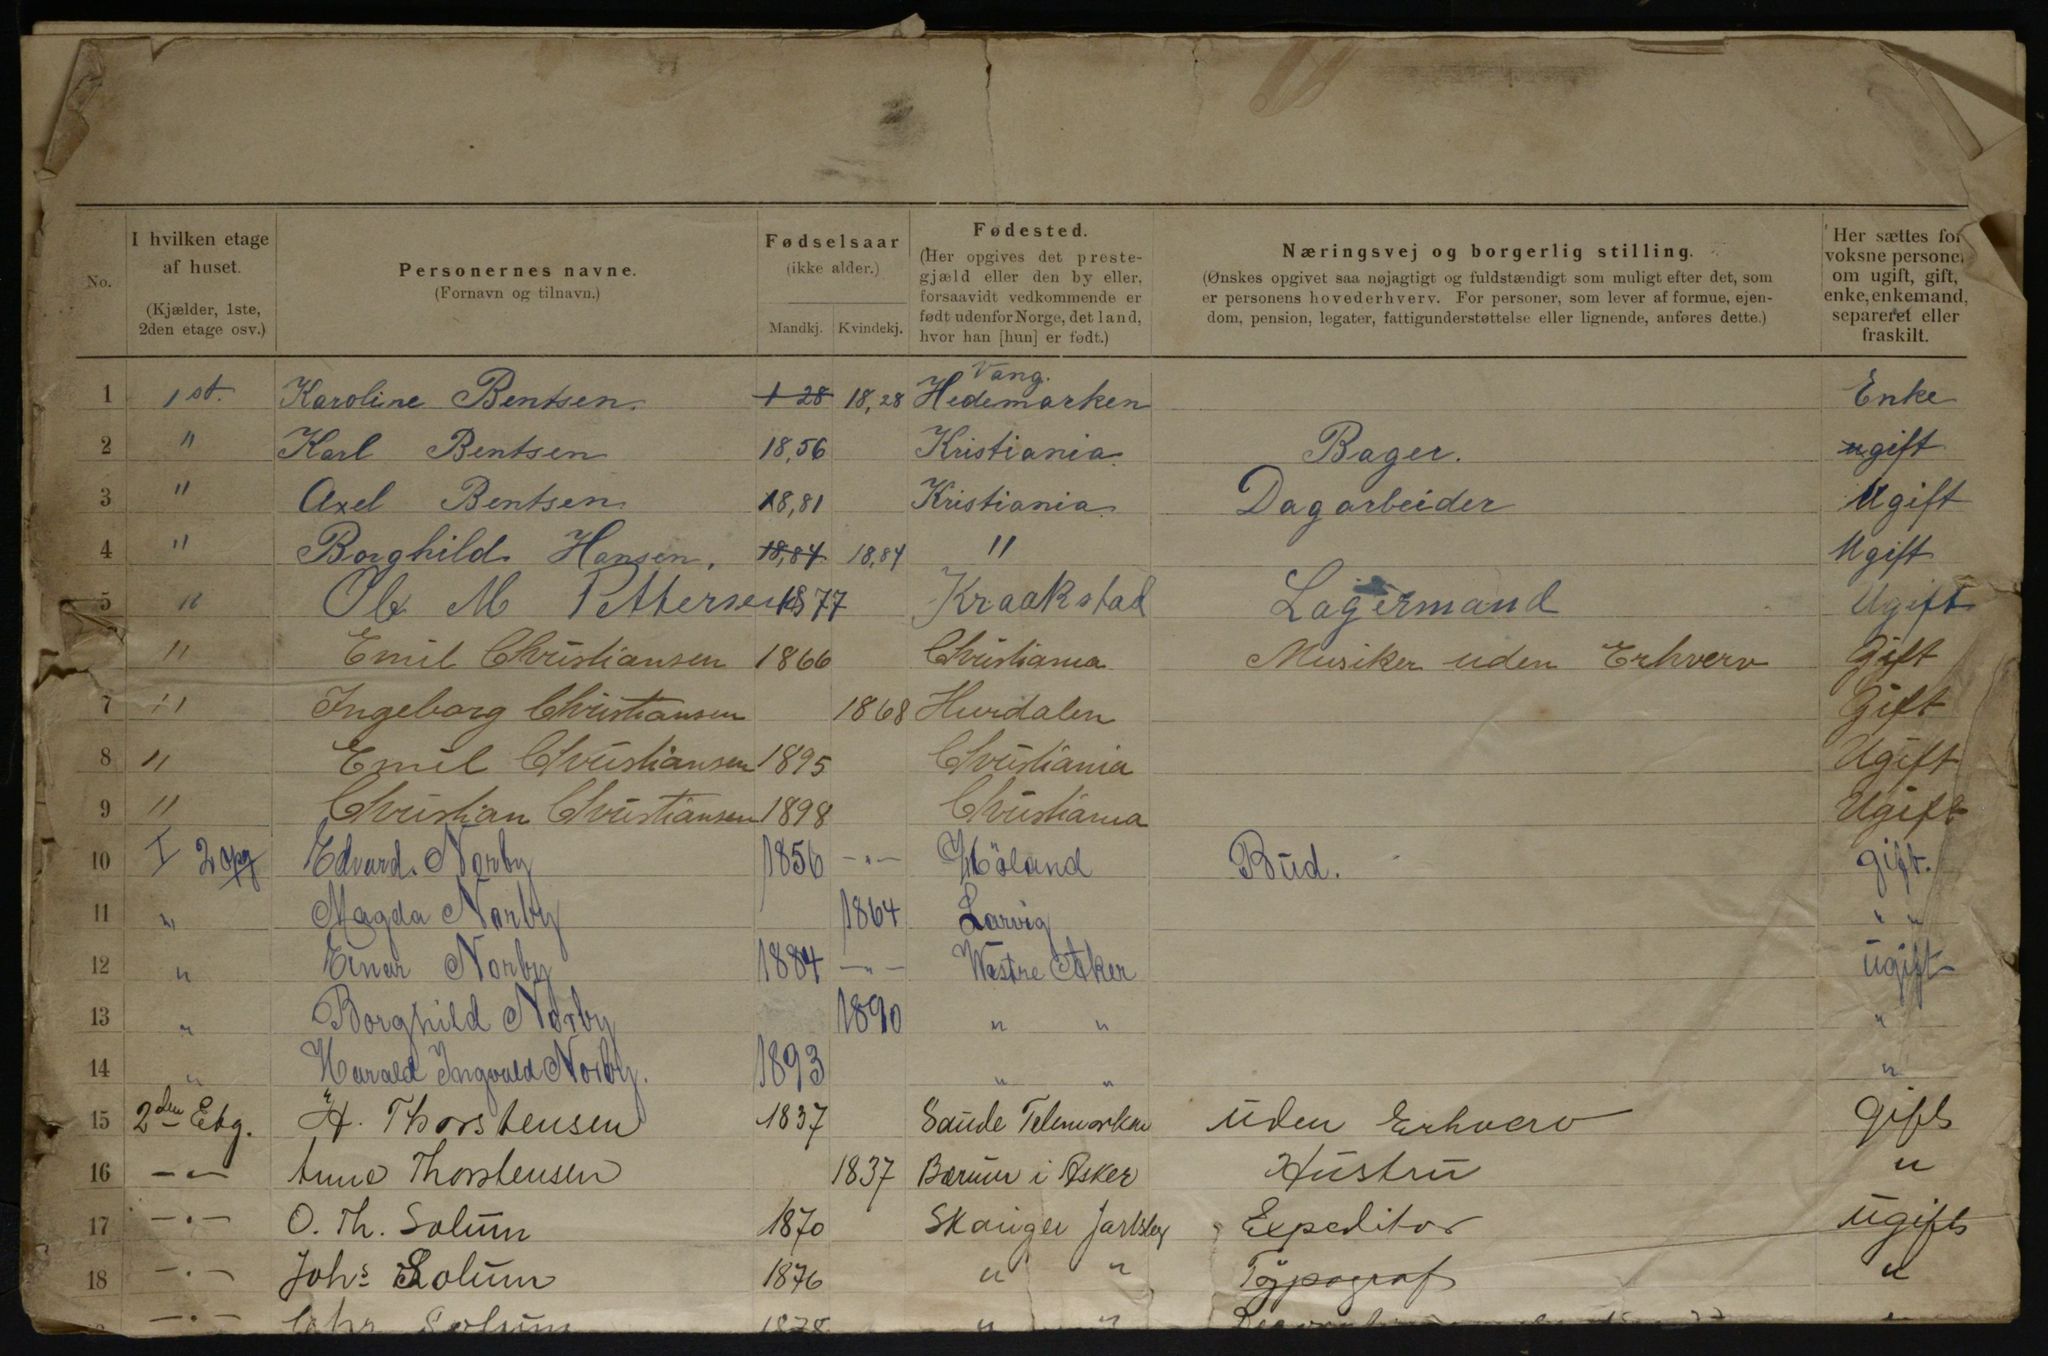 No.
I hvilken etage af huset.
(Kjælder, 1ste, 2den etage osv.)
Personernes navne.
(Fornavn og tilnavn.)
Fødselsaar
(ikke alder.)
Mandkj. Kvindekj.
Fødested.
(Her opgives det preste-
gjæld eller den by eller,
forsaavidt vedkommende er
født udenfor Norge, det land,
hvor han [hun] er født.)
Næringsvej og borgerlig stilling.
(Ønskes opgivet saa nøjagtigt og fuldstændigt som muligt efter det, som
er personens hovederhverv. For personer, som lever af formue, ejen-
dom, pension, legater, fattigunderstøttelse eller lignende, anføres dette.)
Her sættes for
voksne personer
om ugift, gift,
enke, enkemand,
separeret eller
fraskilt.
Vang.
1 1st. Karoline Bentsen. 1 28 18,28 Hedemarken Enke
2 " Karl Bentsen 18,56 Kristiania Bager. ugift
3 " Axel Bentsen 18,81 Kristiania Dagarbeider Ugift
4 " Borghild Hansen. 18,84 18,84 " Ugift
5 " Ole M Pettersen 1877 Kraakstad Lagermand Ugift
" Emil Christiansen 1866 Christiania Musiker uden Erhverv Gift
7 " Ingeborg Christiansen 1868 Hurdalen Gift
8 " Emil Christiansen 1895 Christiania Ugift
9 " Christian Christiansen 1898 Christiania Ugift
10 I 2 opg Edvard. Norby 1856 -"- Høland Bud. gift.
11 " Magda Norby 1864 Larvig " "
12 " Einar Norby 1884 -"- Westre Aker ugift
13 " Borghild Norby 1890 " " "
14 " Harald Ingvald Norby. 1893 " " "
15 2den Etg. H. Thorstensen 1837 Saude Telemarken uden Erhverv gift
16 -"- Anne Thorstensen 1837 Bærum i Asker Hustru "
17 -"- O. Th. Solum 1870 Skouger Jarlsbg Expeditor ugift
18 -"- Johs Solum 1876 " " Typograf "
-"- Solum 1878 " "